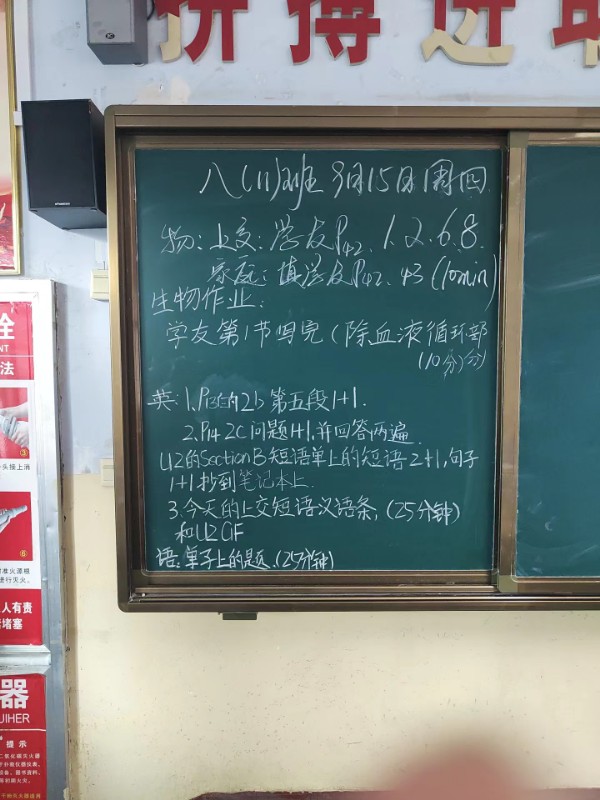 拼搏进取
八(11)班 9月15日 周四
物:上交:学友P42、1.2.6.8.
家庭:填学友P42、43(10min)
生物作业:
学友第1节写完(除血液循环部
(10分)分)
英:1.P13的2b 第五段1+1.
2.P14 2C问题1+1,并回答两遍
U2的Section B短语单上的短语2+1,句子
1+1抄到笔记本上.
3.今天的上交短语汉语条,(25分钟)
和U2GF
语:单子上的题.(25分钟)
全
NT
法
③
头接上消
⑥
进行灭火。
人有责
堵塞
器
UIHER
提示